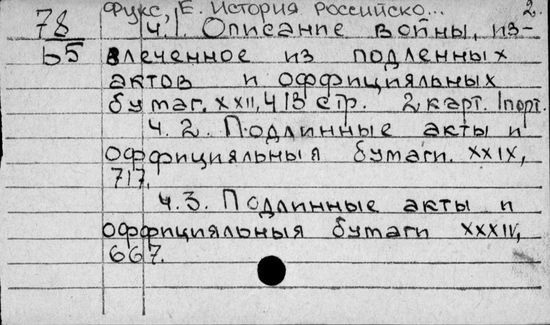 Фукс, Е. История Российско... 2.
78
Ь5
Ч. 1. Описание войны, из-
влеченное из подленных
актов и оффициальных
бумаг. XXII, 413 стр. 2 карт. 1 порт.
Ч. 2. Подлинные акты и
оффициальныя бумаги. XXIX,
717.
Ч. 3. Подлинные акты и
оффициальныя бумаги XXXIV,
667.